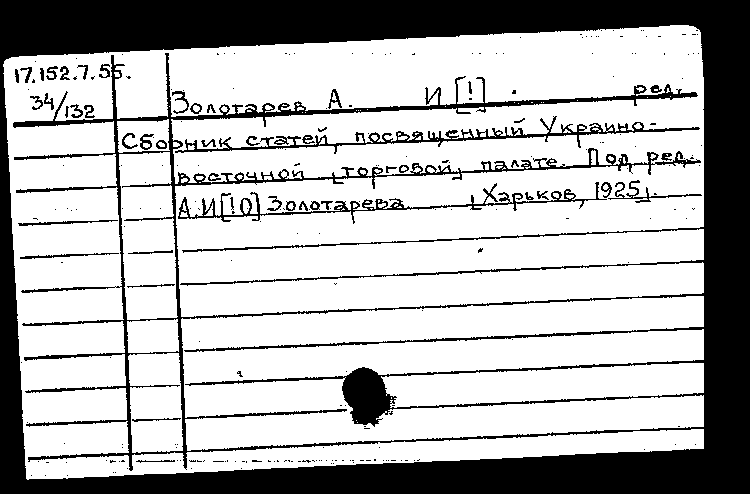 17.152.7.55.
34/132 Золотарев А. И [!] . ред.
Сборник статей, посвященный Украино-
восточной [торговой] палате. Под ред.
А.И[!О] Золотарева [Харьков, 1925].